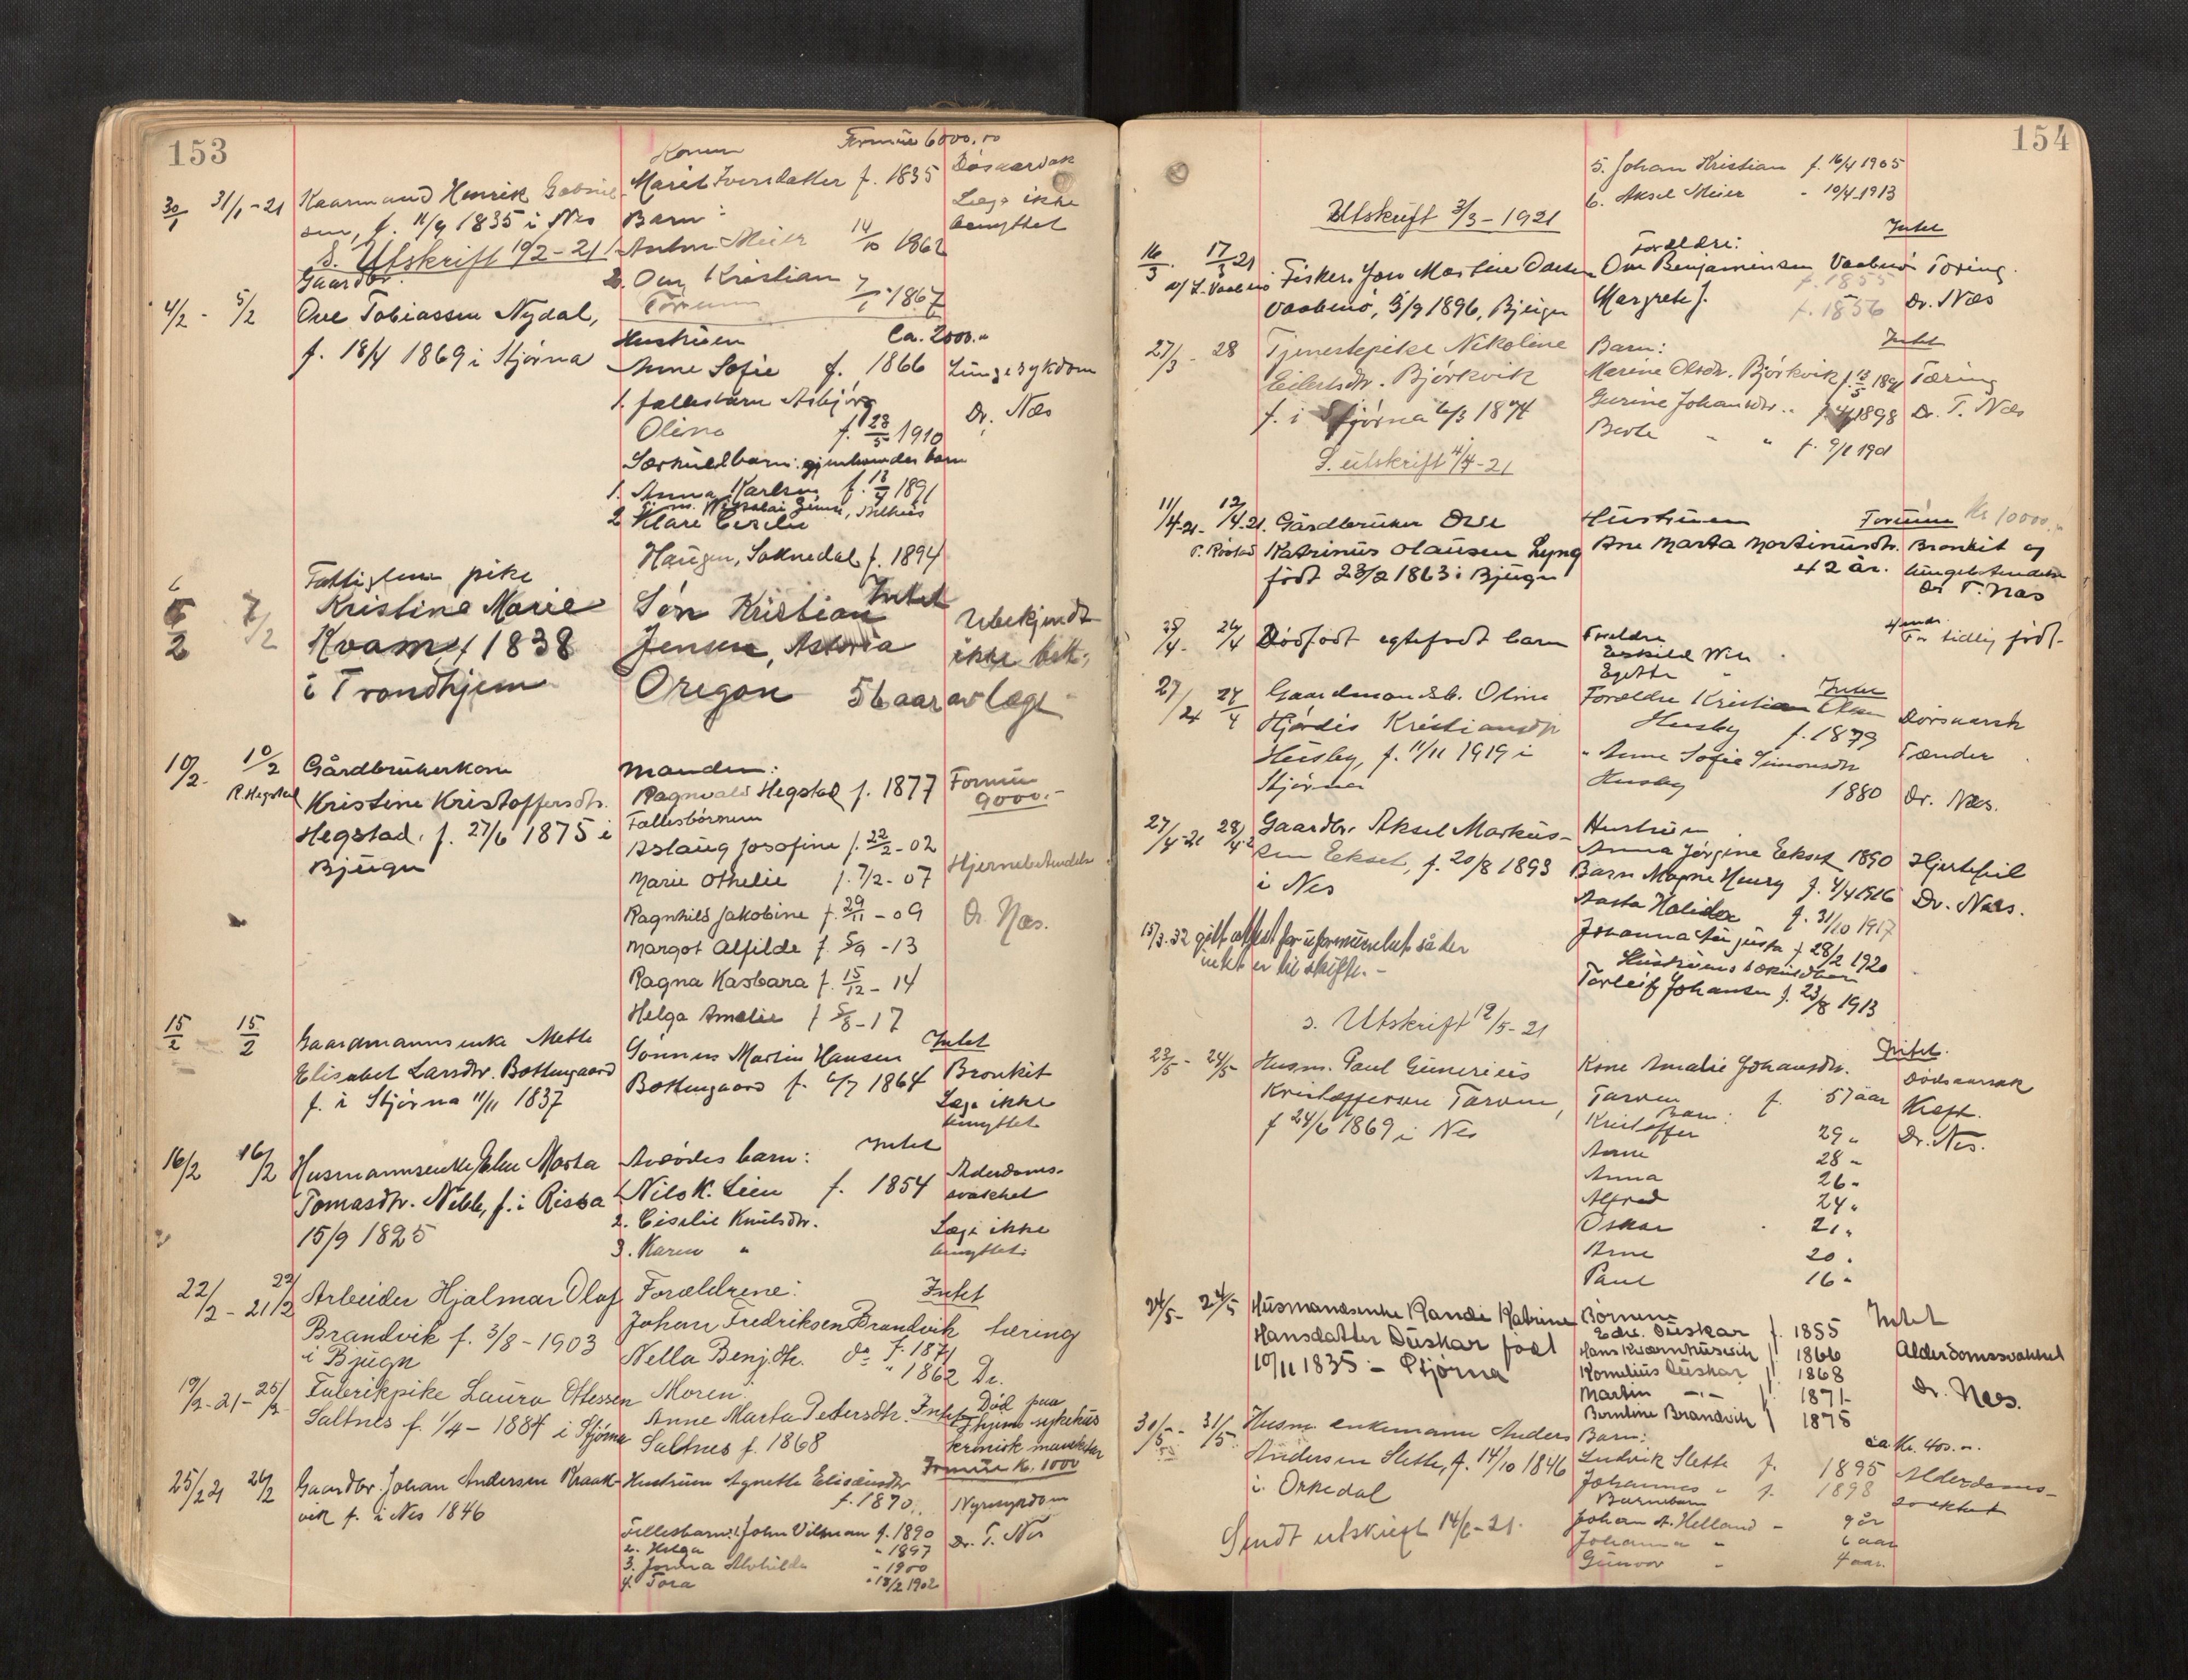 153
Konen Formue 6000.00
30/1 31/1-21 Kaarmand Henrik Gabriel Marit Iversdatter f. 1835 Dösaarsak
sen, f. 11/9 1835 i Nes Barn: Læge ikke
S. Utskrift 1/2-21 1. Anton Meier 14/10 1862 benyttet
Gaardbr. 2. Ole Kristian
4/2 - 5/2 Ove Tobiassen Nydal, 7/1 1867
Hustruen Ca. 2000.
f. 18/4 1869 i Stjørna Anne Sofie f. 1866 Lungesykdom
1. fællesbarn Asbjørg
Olina f. 23/5 1910 Dr. Næs
Særkuldbarn: gjenlevendes barn
1. Anna Karlsen f. 1891
2. Klare Cecilie
Haugen, Soknedal f. 1894
6/2 7/2 Fattiglem, pike Intet
Kristine Marie Søn Kristian Ubekjendt
Kvam, f 1838 Jensen, Astoria ikke beh.
i Trondhjem Oregon 56 aar av læge
10/2- 10/2 Gårdbrukerkone Manden:
R. Hegstad Kristine Kristoffersdtr. Ragnvald Hegstad f. 1877 Formue 9000.-
Hegstad. f. 27/6 1875 i Fællesbörnene
Bjugn Aslaug Josofine f. 22/2-02
Marie Othelie f. 7/2-07 Hjernebetændelse
Ragnhild Jakobine f. 29/11-09 Dr. Næs.
Margot Alfilde f. 5/9-13
Ragna Kasbara f. 15/12-14
Helga Amalie f 5/8-17
15/2 15/2 Gaardmannsenke Mette Sønnen Martin Hansen Intet
Elisabet Larsdtr. Bottengaard Bottengaard f. 6/7 1864 Bronkit
f. i Stjørna 11/11 1837 Læge ikke
benyttet
16/2 16/2 Husmannsenke Elen Marta Avdødes barn: Intet
Tomasdtr. Nebb, f. i Rissa 1. Nils K. Lien f. 1854 Alderdoms-
svakhet
15/9 1825 2. Ciselie Knutsdtr. Læge ikke
3. Karen " benyttet
22/2-21 22/2 Arbeider Hjalmar Olaf Forældrene: Intet
Brandvik f. 3/8-1903 Johan Fredriksen Brandvik tæring
i Bjugn do f. 1871
Nella Benj.dtr. " 1862 Dr.
19/2-21- 25/2 Fabrikpike Laura Ottessen Moren: Død paa
Saltnes f. 1/4-1884 i Stjørna Anne Marta Pedersdtr. Intet Thjems sykehus
Saltnes f. 1868 kronisk mavekatar
25/2 21 26/2 Gaardbr. Johan Andersen Kraak- Hustruen Agnethe Eliseusdtr Formue K. 1000
vik f. i Nes 1846 f. 1870. Nyresykdom
Fellesbarn: 1. John Vilman f. 1890 Dr. T. Næs
2. Helga " 1897
3. Jonna Alvhilda " 1900
4. Tora " 13/2 1902
154
5. Johan Kristian f. 16/4 1905
6. Aksel Meier " 10/4-1913
Utskrift 3/3-1921
16/3. 17/3 21 Forældre: Intet
Fisker. Jon Martin Olsen Ole Benjaminsen Vaabenö Tæring.
f. 1855
Vaabenö, 5/9 1896, Bjugn Margrete J. f. 1856 Dr. Næs
27/3 - 28 Tjenestepike Nikoline Barn: Intet
Eilertsdtr. Björkvik Marine Olsdtr. Björkvik f. 13/5 1891 Tæring
f. i Stjørna 6/3 1874 Gurine Johansdtr. " 1898 Dr. T. Næs
Berte " " f. 9/1 1901
S. utskrift 4/4-21
11/4-21- 12/4-21. Gårdbruker Ove Hustruen Formue Kr 10000.
P. Röstad Katrinus Olausen Lyng Ane Marta Martinusdtr. Bronkit og
født 23/2 1863 i Bjugn 42 år. lungebetændelse
Dr T. Næs
24/4 Dödfödt egtefødt barn Forældre For tidlig född.
Eskild
27/4 Gaardmandsb. Oline Forældre Kristian Olsen Intet
Hjördis Kristiansdtr Husby f. 1879 Dørsaarsk
Husby, f. 11/11 1919 i " Anne Sofie Simonsdtr Tænder
Stjørna Husby 1880 Dr. Næs.
27/4-21 28/4-21 Gaardbr. Aksel Markus- Hustruen
sen Eekset, f. 20/8 1893 Anna Jörgine Eekset 1890 Hjertefeil
i Nes Barn Magne Henry f. 4/4 1916 Dr. Næs.
Aasta Halida f. 31/10 1917
Johanna f 28/2 1920
15/3.32 gitt attest for uformuenhet så der
intet er til skifte.-
Hustruens særkuldbarn
Torleif Johansen f. 23/8 1913
s. Utskrift 12/5-21
23/5 - 24/5 Husm. Paul Gunerius Kone Amalie Johansdtr. Intet.
Kristoffersen Tarven, Tarven f. 57 aar Dödsaarsak
f 24/6 1869 i Nes Barn: Kræft.
Kristoffer 29 " Dr. Næs.
Anne 28 -
Anna 26 -
Alfred 24 "
Oskar 21 "
Arne 20 .
Paul 16 -
24/5- 24/5 Husmandsenke Randi Katrine Børnene Intet
Hansdatter Duskar født Edv. Duskar f. 1855
10/11 1835 - Stjørna Hans f. 1866 Alderdomssvakhet
Kornelius Duskar f. 1868
Martin -"- f. 1871 Dr. Næs.
Berntine Brandvik f 1875
30/5 - 31/5. Husm. enkemann Anders Barn: ca. Kr. 400.-
Andersen Slette, f. 14/10 1846 Ludvik Slette f. 1895 Alderdoms-
i Orkedal Johannes " f. 1898 svakhet
Barnebarn
Johan A. Helland - 9 år
Johanna " - 6 aar
Gunvor - 4 aar.
Sendt utskrift 14/6-21.